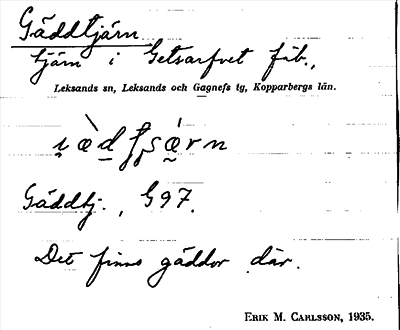 Gäddtjärn
tjärn i Getsarfvet fäb.,
Leksands sn, Leksands och Gagnefs tg, Kopparbergs län.
Gäddtj., G97.
Det finns gäddor där.
Erik M. Carlsson, 1935.